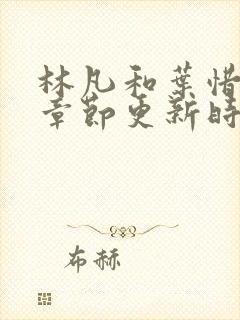 林凡和葉惜
章節更新時
布赫